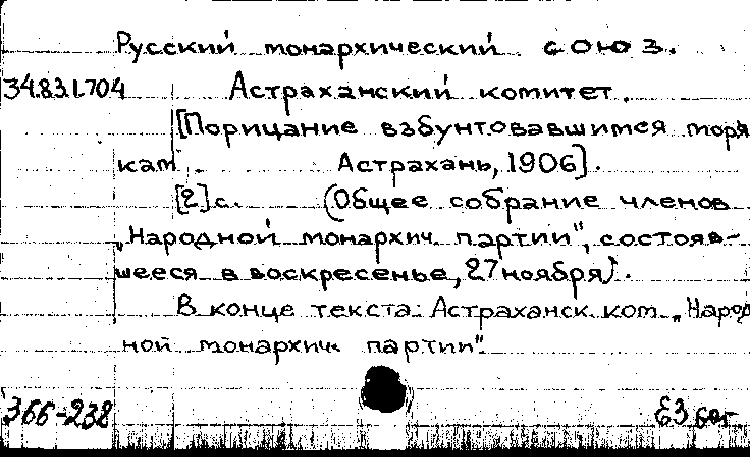 Русский монархический союз.
34.83.1.704 Астраханский комитет.
[Порицание взбунтовавшимся моря
кам. Астрахань, 1906].
[2]с. (Общее собрание членов
„Народной монархич. партии", состояв-
шееся в воскресенье, 27 ноября).
В конце текста: Астраханск. ком. „Народ
ной монархич. партии".
366-238